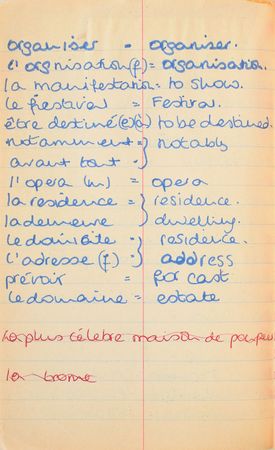 organiser - organiser.
l'orgnisation (f) = organisation.
la manifestation = to show.
le festival = Festival.
être destiné(e)(s) to be destined
notamment = } notably
avant tout - }
l'opera (m) = opera
la residence = } residence.
la demeure } dwelling.
le domicile - } residence.
l'adresse (f) - } address
prévoir = for cast
le domaine = estate
La plus célebre maison de
la